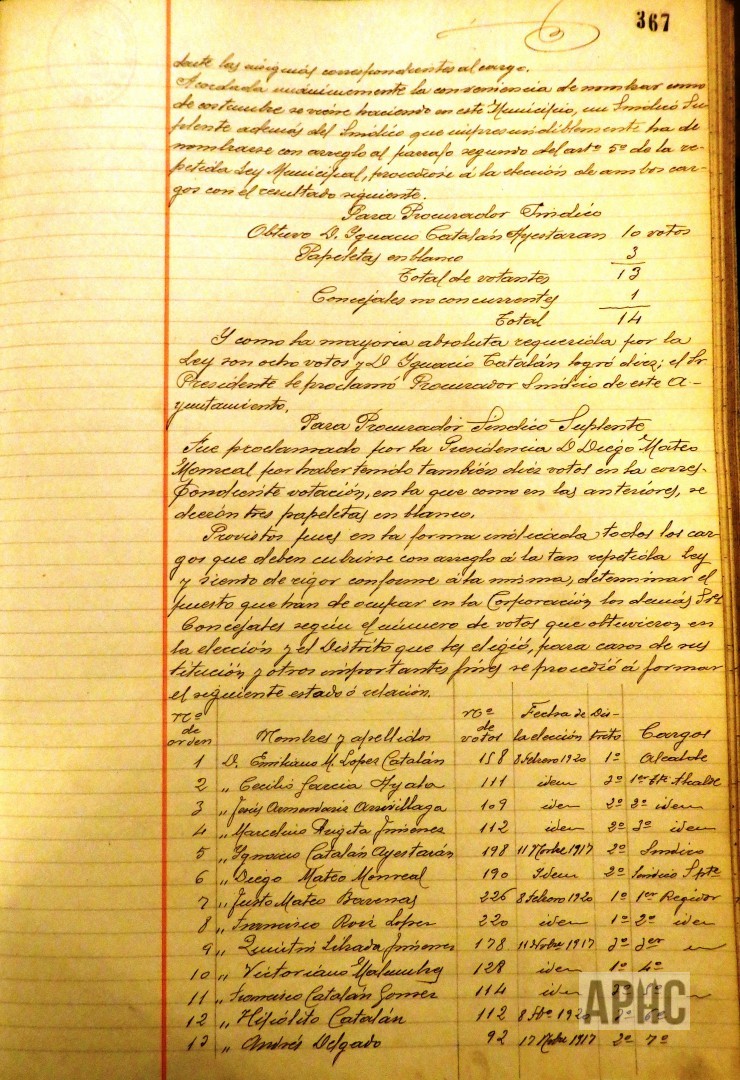 367
dante las insignias correspondientes al cargo.
Acordada unánimemente la conveniencia de nombrar como
de costumbre se viene haciendo en este Municipio, un Síndico Su-
plente además del Síndico que imprescindiblemente ha de
nombrarse con arreglo al párrafo segundo del artº 5º de la re-
petida Ley Municipal, procedióse á la elección de ambos car-
gos con el resultado siguiente.
Para Procurador Síndico
Obtuvo D. Ygnacio Catalán Ayestaran 10 votos
Papeletas en blanco 3
Total de votantes 13
Concejales no concurrentes 1
Total 14
Y como la mayoria absoluta requerida por la
Ley son ocho votos y D Ygnacio Catalán logró diez; el Sr
Presidente le proclamó Procurador Síndico de este A-
yuntamiento.
Para Procurador Síndico Suplente
Fue proclamado por la Presidencia D Diego Mateo
Monreal por haber tenido también diez votos en la corres-
pondiente votación, en la que como en las anteriores, se
dieron tres papeletas en blanco.
Provistos pues en la forma indicada todos los car-
gos que deben cubrirse con arreglo á la tan repetida Ley
y siendo de rigor conforme á la misma, determinar el
puesto que han de ocupar en la Corporación los demás Sres
Concejales según el número de votos que obtuvieron en
la elección y el Distrito que les eligió, para casos de sus
titución y otros importantes fines se procedió á formar
el siguiente estado ó relación.
Nº de orden Nombres y apellidos Nº de votos Fecha de la elección Distrito Cargos
1 D. Emiliano M. Lopez Catalán 158 8 Febrero 1920 1º Alcalde
2 „ Cecilio Garcia Ayala 111 idem 2º 1er Tte Alcalde
3 „ Jesús Armendariz Arrivillaga 109 idem 2º 2º idem
4 „ Marcelino Jimenez 112 idem 2º 3º idem
5 „ Ygnacio Catalán Ayestarán 198 11 Novbre 1917 2º Sindico
6 „ Diego Mateo Monreal 190 Idem 2º Sindico Splte
7 „ Justo Mateo 226 8 Febrero 1920 1º 1er Regidor
8 „ Francisco Ruiz Lopez 220 idem 1º 2º idem
9 „ Quintin Jimenez 178 11 Novbre 1917 2º 3er
10 „ Victoriano 128 idem 1º 4º
11 „ Francisco Catalán Gomez 114 idem 2º 5º
12 „ Hipólito Catalán 112 8 Fbº 1920 2º 6º
13 „ Andrés Delgado 92 17 Novbre 1917 2º 7º
APHC